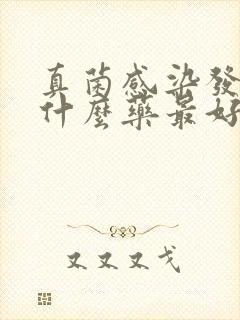 真菌感染發
什麼藥最好
又又又戈